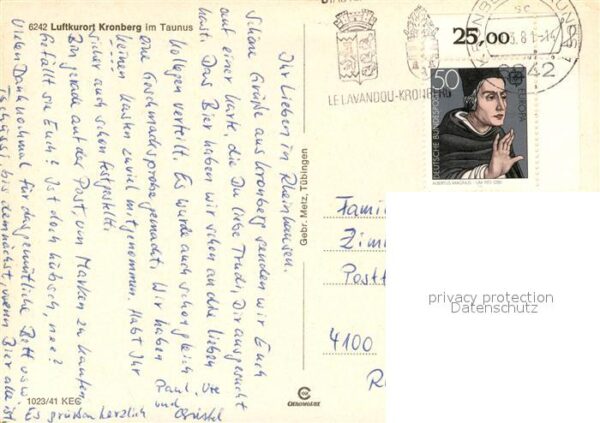 6242 Luftkurort Kronberg im Taunus
Ihr Lieben in Rheinhausen.
Schöne Grüße aus Kronberg senden wir Euch
auf einer Karte, die Du liebe Trudi, Dir ausgesucht
hast. Das Bier haben wir schon an die lieben
Kollegen verteilt. Es wurde auch schon gleich
eine Geschmacksprobe gemacht. Wir haben
keinen Kasten zuviel mitgenommen. Habt Ihr
sicher auch schon festgestellt.
Bin gerade auf der Post, um Marken zu kaufen.
Gefällt sie Euch? Ist doch hübsch, nee?
Vielen Dank nochmal für das gemütliche Bett usw.
Tschüssi bis demnächst, wenn Bier alle ist.
Es grüßen herzlich
Paul, Ute
und
1023/41 KEC
Gebr. Metz, Tübingen
CEKOMCOLOR
LE LAVANDOU-KRONBERG
25,00
50
DEUTSCHE BUNDESPOST
EUROPA
ALBERTUS MAGNUS
6242
Famili
Zim
Postf
4100
R
privacy protection
Datenschutz